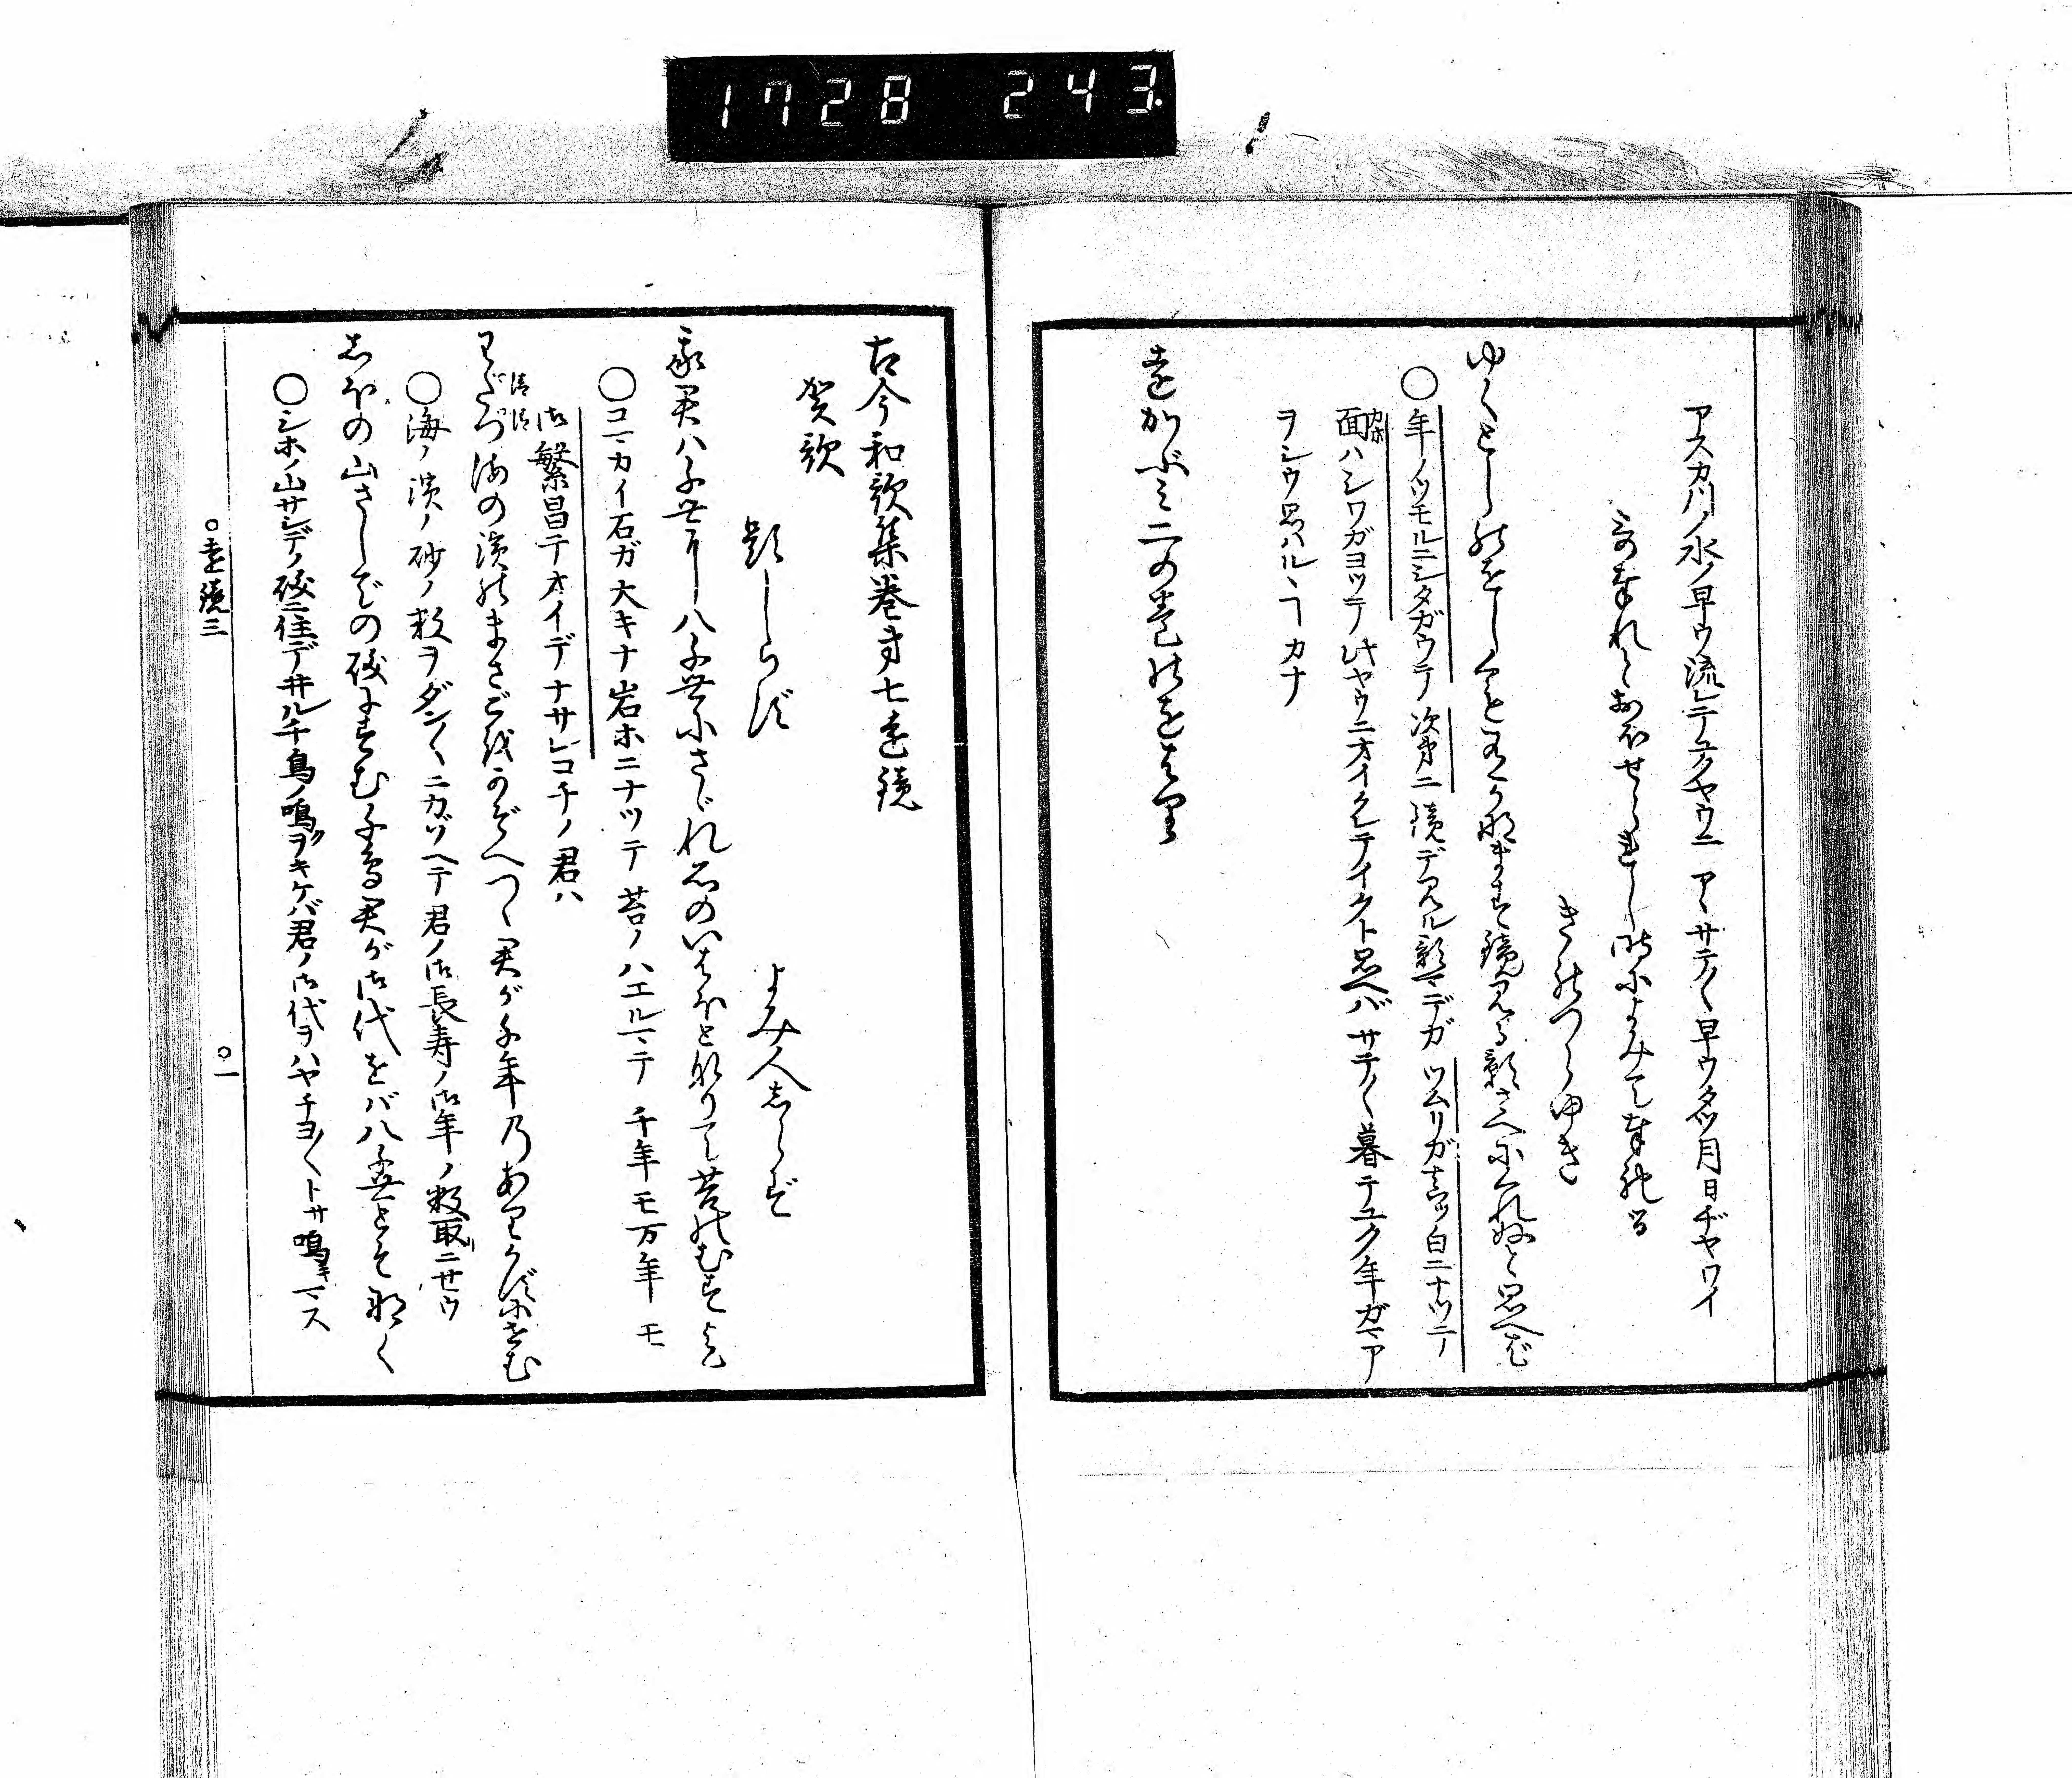 1728 243
アスカ川ノ水ノ早ウ流レテユクヤウニ アヽサテ〳〵早ウタツ月日ヂヤワイ
うた奉れとおほせられし時によみて奉れる
きのつらゆき
ゆくとしのをしくも有かなます鏡見る影さへにくれぬと思へば
〇年ノツモルニシタガウテ 次第ニ 鏡デ見ル影マデガ ツムリガ真ッ白ニナツテ
面ハシワガヨツテ ヒヤウニオイクレテイクト思ヘバ サテ〳〵暮テユク年ガマア
カホ
ヲシウ思ハルヽヿカナ
遠かゞみ二の巻のをはり
古今和歌集巻第七遠鏡
賀歌
題しらず
よみ人しらず
我君ハ千世にー八千世にさゞれ石のいはほと成りて苔のむすまで
〇コマカイ石ガ大キナ岩ホニナツテ 苔ノハエルマテ 千年モ万年モ
御繁昌テオイデナサレコチノ君ハ
清 清
わたつ海の濱のまさごをかぞへつゝ君が千年乃ありかずにせむ
〇海ノ濱ノ砂ノ数ヲダン〳〵ニカゾヘテ君ノ御長寿ノ御年ノ数取ニセウ
しほの山さしでの磯にすむ千鳥君が御代をバ八千世とそ鳴く
〇シホノ山サシデノ磯ニ住デ井ル千鳥ノ鳴クヲキケバ君ノ御代ヲハヤチヨ〳〵トサ鳴キマス
〇遠鏡三
〇一